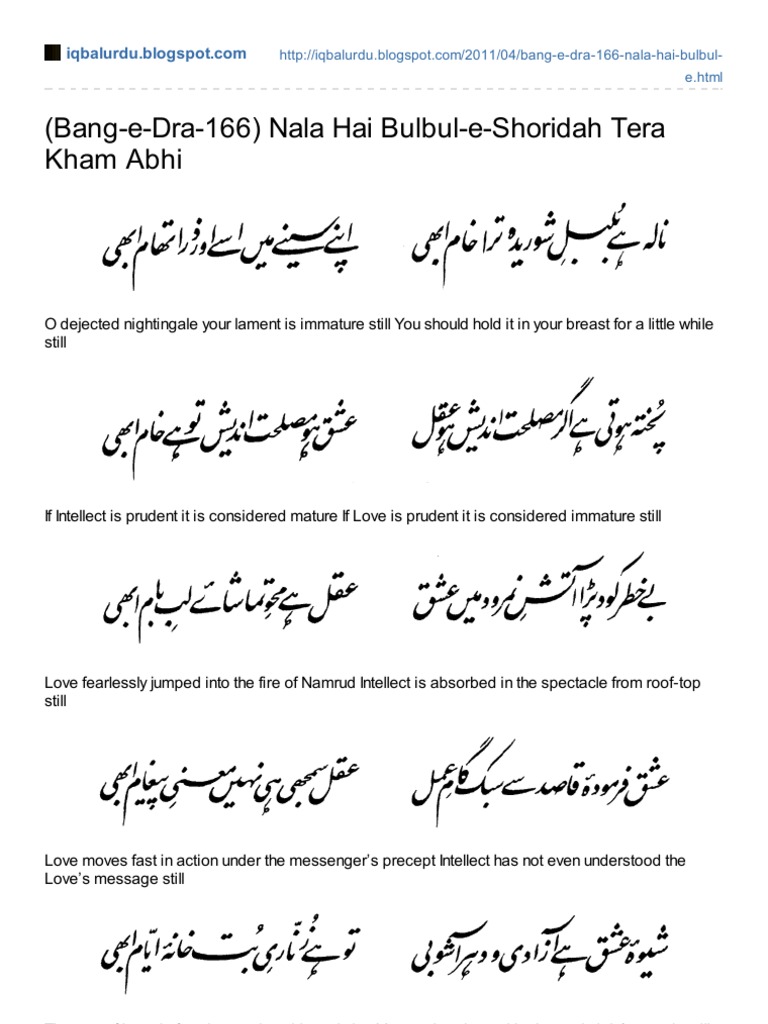 iqbalurdu.blogspot.com
http://iqbalurdu.blogspot.com/2011/04/bang-e-dra-166-nala-hai-bulbul-
e.html
(Bang-e-Dra-166) Nala Hai Bulbul-e-Shoridah Tera
Kham Abhi
نالہ ہے بُلبلِ شوریدہ ترا خام ابھی اپنے سینے میں اسے اور ذرا تھام ابھی
O dejected nightingale your lament is immature still You should hold it in your breast for a little while
still
پُختہ ہوتی ہے اگر مصلحت اندیش ہو عقل عشق ہو مصلحت اندیش تو ہے خام ابھی
If Intellect is prudent it is considered mature If Love is prudent it is considered immature still
بے خطر کود پڑا آتشِ نمرود میں عشق عقل ہے محوِ تماشائے لبِ بام ابھی
Love fearlessly jumped into the fire of Namrud Intellect is absorbed in the spectacle from roof-top
still
عشق فرمودۂ قاصد سے سبک گامِ عمل عقل سمجھی ہی نہیں معنیِ پیغام ابھی
Love moves fast in action under the messenger's precept Intellect has not even understood the
Love's message still
شیوۂ عشق ہے آزادی و دہر آشوبی تو ہے زُنّاریِ بُت خانۂ ایّام ابھی